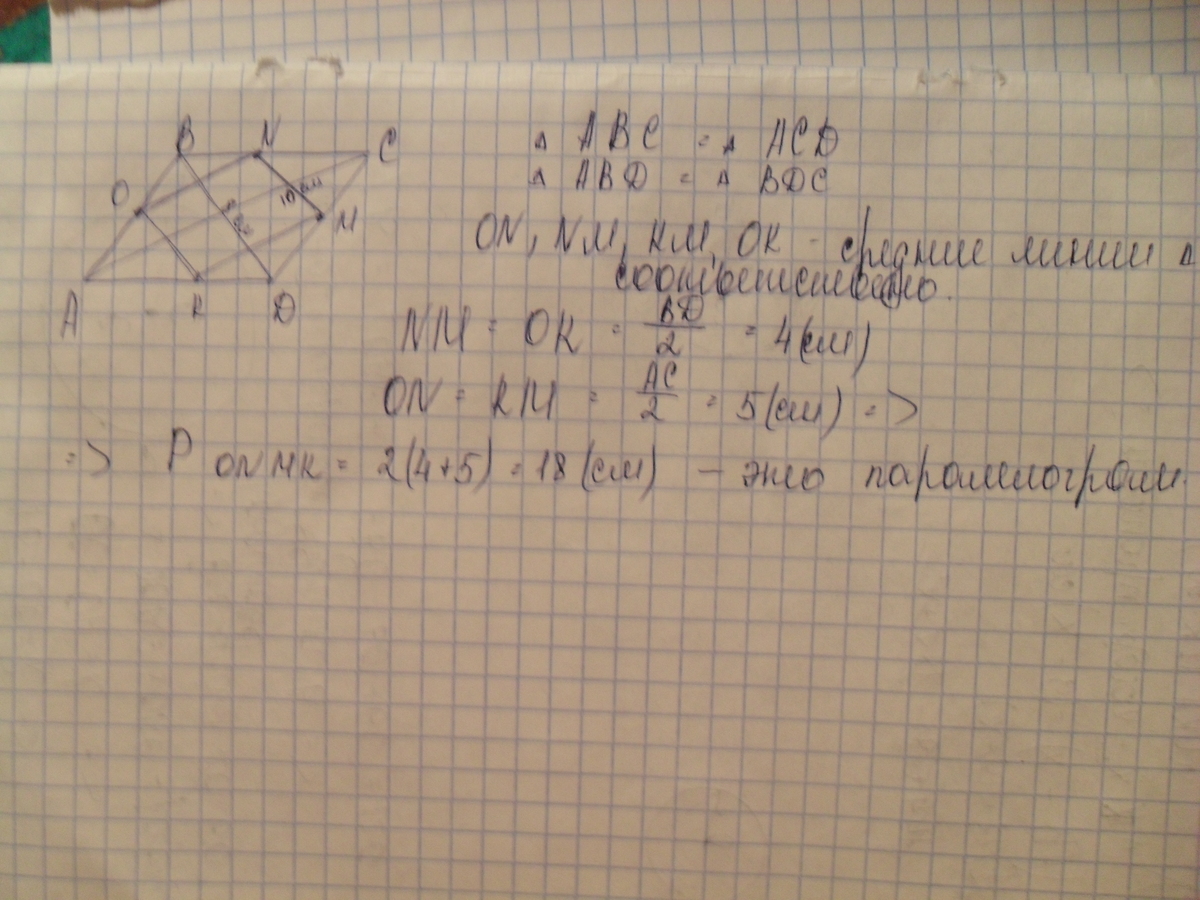 B N C
O 8 см 10 см M
A K D
△ ABC = △ ACD
△ ABD = △ BDC
ON, NM, KM, OK - средние линии △
соответственно.
NM = OK = BD/2 = 4(см)
ON = KM = AC/2 = 5(см) =>
=> P ONMK = 2(4+5) = 18 (см) — это параллелограмм.